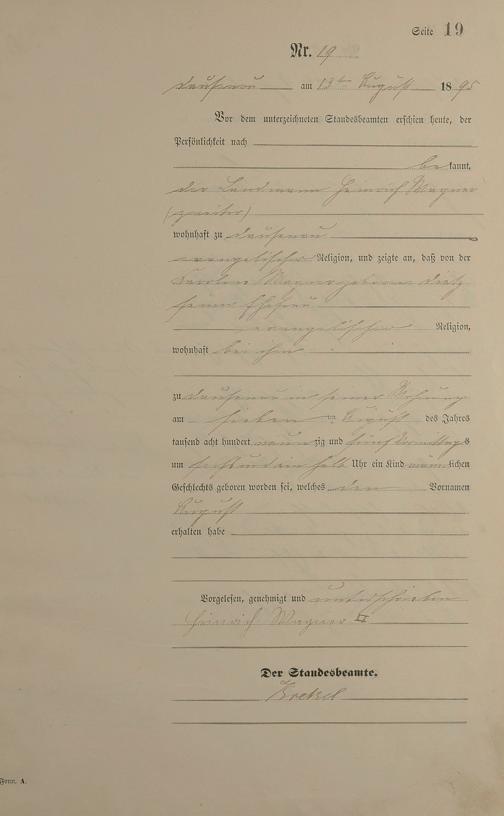 Seite 19
Nr. 19
Dausenau am 13ten August 1895
Vor dem unterzeichneten Standesbeamten erschien heute, der
Persönlichkeit nach
bekannt,
der Landmann Heinrich Wagner
(zweiter)
wohnhaft zu Dausenau
evangelischer Religion, und zeigte an, daß von der
Karoline Wagner geborene Dietz
seiner Ehefrau
evangelischer Religion,
wohnhaft bei ihm
zu Dausenau in seiner Wohnung
am sieben August des Jahres
tausend acht hundert neunzig und fünf Vormittags
um sechs und ein halb Uhr ein Kind männlichen
Geschlechts geboren worden sei, welches den Vornamen
August
erhalten habe
Vorgelesen, genehmigt und unterschrieben
Heinrich Wagner II
Der Standesbeamte.
Form. A.